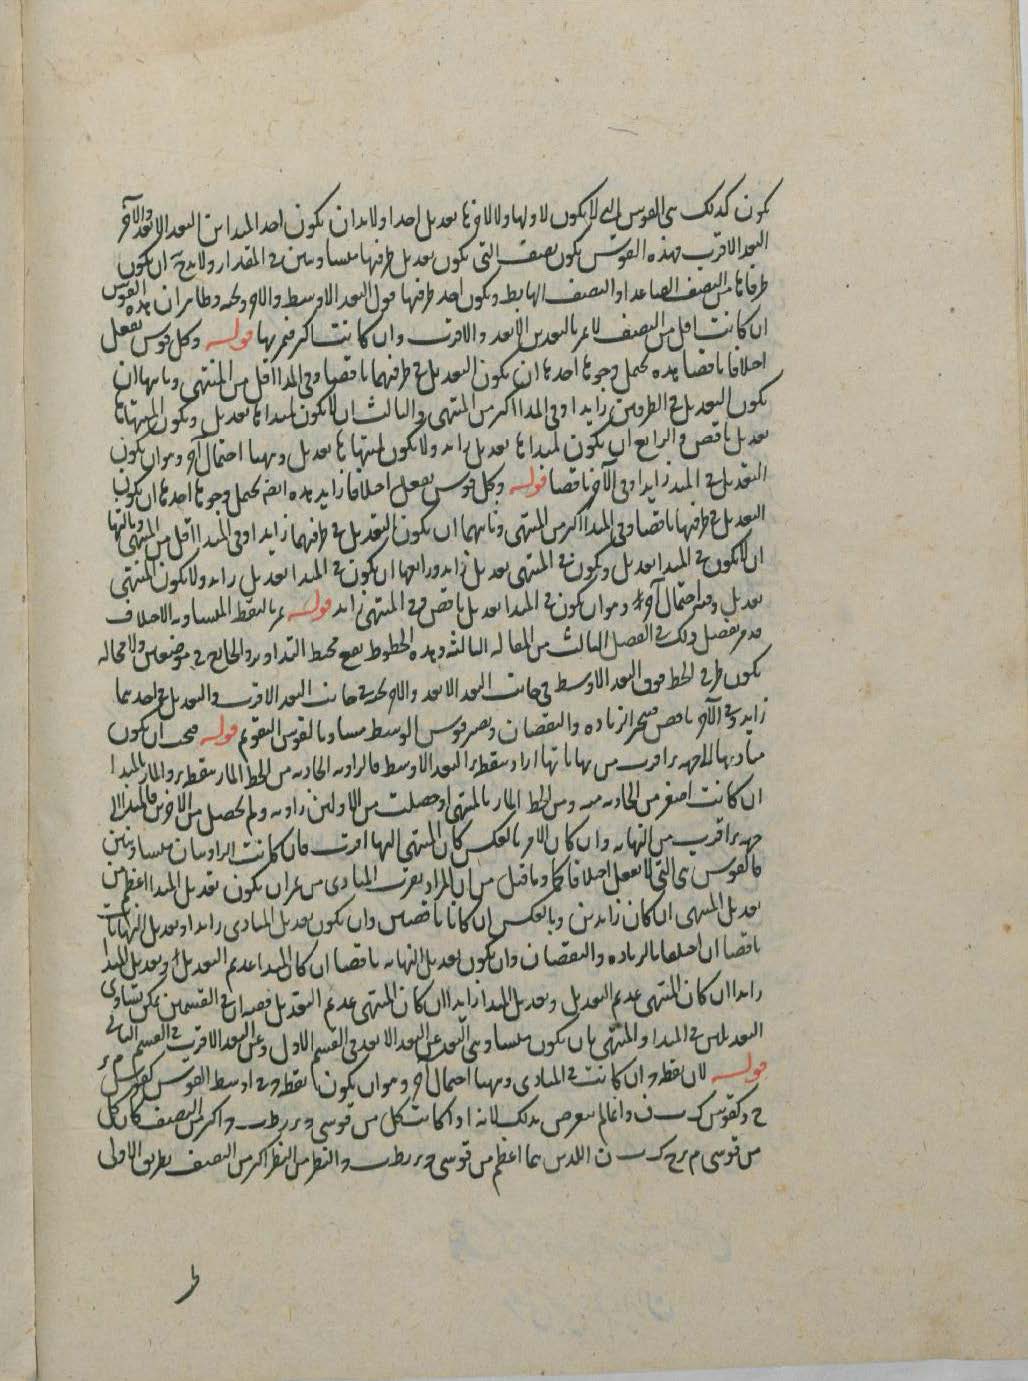 يكون كذلك هي القوس التي لا يكون لا لاولها ولا لاخرها تعديل احدا ولا بد ان يكون احد المبداين البعد الابعد والآخر
البعد الاقرب فهذه القوس تكون نصف التي يكون تعديل طرفيها متساويين في المقدار ولا بد ح ان يكون
طرفاها من النصف الصاعد او النصف الهابط ويكون احد طرفيها فوق البعد الاوسط والآخر تحته وظاهر ان هذه القوس
ان كانت اقل من النصف لا تمر بالبعدين الابعد والاقرب وان كانت اكثر فتمر بها قوله وكل قوس تفعل
اختلافا ناقصا هذه يحتمل وجوها احدها ان يكون التعديل في طرفيهما ناقصا وفي المبدا اقل من المنتهى وثانيها ان
يكون التعديل في الطرفين زايدا وفي المبدا اكثر من المنتهى والثالث ان لا يكون لمبداها تعديل ويكون لمنتهاها
تعديل ناقص والرابع ان يكون لمبداها تعديل زايد ولا يكون لمنتهاها تعديل وههنا احتمال آخر وهو ان يكون
التعديل في المبدا زايدا وفي الآخر ناقصا قوله وكل قوس تفعل اختلافا زايدا هذه ايضا يحتمل وجوها احدها ان يكون
التعديل في طرفيها ناقصا وفي المبدا اكثر من المنتهى وثانيهما ان يكون التعديل في طرفيهما زايدا وفي المبدا اقل من المنتهى وثالثها
ان لا يكون في المبدا تعديل ويكون في المنتهى تعديل زايد ورابعها ان يكون في المبدا تعديل زايد ولا يكون للمنتهى
تعديل وفيه احتمال آخر وهو ان يكون في المبدا تعديل ناقص وفي المنتهى زايد قوله تمر بالنقط المتساوية الاختلاف
قد مر تفصيل ذلك في الفصل الثالث من المقالة الثالثة وهذه الخطوط تقع محيط التداوير والخارج في موضعين ولا محالة
يكون طرف الخط فوق البعد الاوسط في جانب البعد الابعد والآخر تحته في جانب البعد الاقرب والتعديل في احدهما
زايد وفي الآخر ناقص فينجبر الزيادة والنقصان ويصير قوس الوسط مساويا لقوس التقويم قوله فيجب ان يكون
مباديها الى جهة ر اقرب من نهاياتها اراد بنقطة ر البعد الاوسط فالزاوية الحادثة من الخط المار بنقطة ر والمار بالمبدا
ان كانت اصغر من الحادثة منه ومن الخط المار بالمنتهى او حصلت من الاولين زاوية ولم يحصل من الآخرين فالمبدا الى
جهة ر اقرب من النهاية وان كان الامر بالعكس كان المنتهى اليها اقرب فان كانت الزاويتان متساويتين
فالقوس هي التي لا تفعل اختلافا كما وما قيل من ان المراد بقرب المبادى من ر ان يكون تعديل المبدا اعظم من
تعديل المنتهى ان كان زايدين وبالعكس ان كانا ناقصين وان يكون تعديل المبادى زايدا وتعديل النهايات
ناقصا ان اختلفا بالزيادة والنقصان وان يكون تعديل النهاية ناقصا ان كان المبدا عديم التعديل وتعديل المبدا
زايدا ان كان المنتهى عديم التعديل وتعديل المبدا زايدا ان كان المنتهى عديم التعديل ففيه ان في القسمين يمكن تساوى
التعديلين في المبدا والمنتهى بان يكون متساويي البعد عن البعد الابعد في القسم الاول وعن البعد الاقرب في القسم الثاني
قوله لان نقط وان كانت في المبادى وههنا احتمال آخر وهو ان يكون نقط في اوسط القوس
وانما لم يتعرض بذلك لانه اذا كانت كل من قوسي اكثر من النصف كان كل
من قوسي اللذين هما اعظم من قوسي اكثر من النصف بطريق الاولى